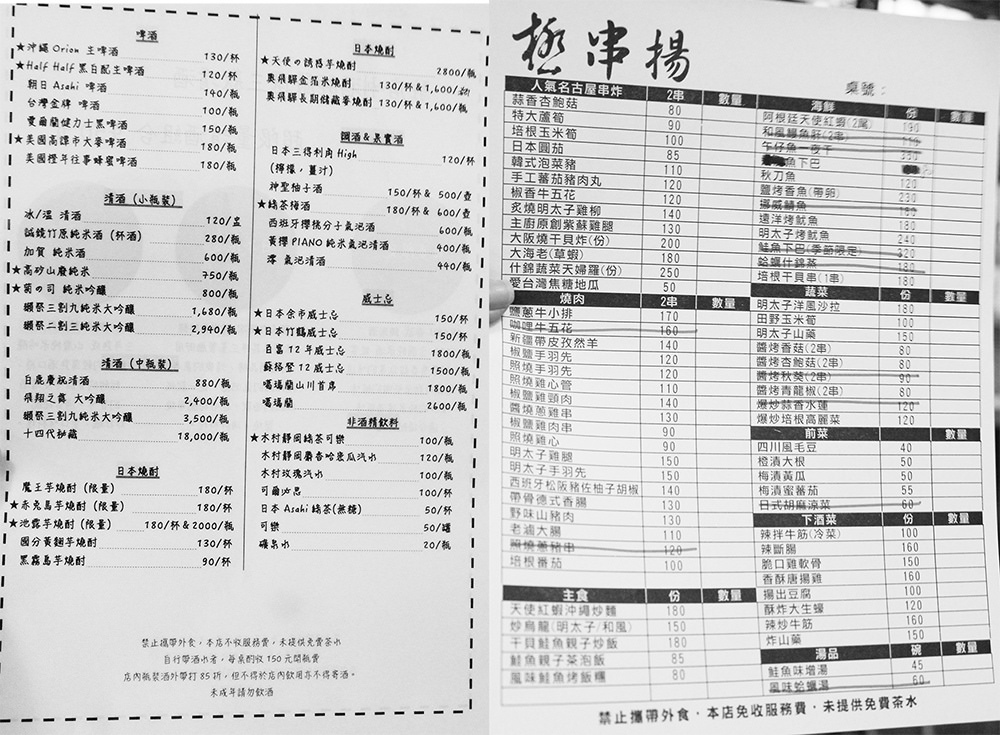 啤酒
★沖繩 Orion 生啤酒 130/杯
★Half Half 黑白配生啤酒 120/杯
朝日 Asahi 啤酒 140/瓶
台灣金牌 啤酒 100/瓶
愛爾蘭健力士黑啤酒 150/瓶
★美國高譚市大麥啤酒 180/瓶
美國陳年往事蜂蜜啤酒 180/瓶
清酒（小瓶裝）
冰/溫 清酒 120/盅
誠鏡竹原純米酒 (杯酒) 280/瓶
加賀 純米酒 600/瓶
★高砂山廢純米 750/瓶
★菊の司 純米吟釀 800/瓶
獺祭三割九純米大吟釀 1,680/瓶
獺祭二割三純米大吟釀 2,940/瓶
清酒（中瓶裝）
白鹿慶祝清酒 880/瓶
飛翔之舞 大吟釀 2,400/瓶
獺祭三割九純米大吟釀 3,500/瓶
十四代秘藏 18,000/瓶
日本燒酎
魔王芋燒酎 (限量) 180/杯
★赤兔馬芋燒酎 (限量) 180/杯
★池露芋燒酎 (限量) 180/杯&2000/瓶
國分黃麴芋燒酎 130/杯
黑霧島芋燒酎 90/杯
日本燒酎
★天使の誘惑芋燒酎 2800/瓶
奧飛驒金箔米燒酎 130/杯&1,600/瓶
奧飛驒長期儲藏麥燒酎 130/杯&1,600/瓶
調酒&果實酒
日本三得利角 High 120/杯
(檸檬，薑汁)
神聖柚子酒 150/杯& 500/壺
★綠茶梅酒 180/杯& 600/壺
西班牙櫻桃分子氣泡酒 600/瓶
黃櫻 PIANO 純米氣泡清酒 400/瓶
澪 氣泡清酒 490/瓶
威士忌
★日本余市威士忌 150/杯
★日本竹鶴威士忌 150/杯
百富 12 年威士忌 1800/瓶
蘇格登 12 威士忌 1500/瓶
噶瑪蘭山川首席 1800/瓶
噶瑪蘭 2600/瓶
非酒精飲料
★木村靜岡綠茶可樂 100/瓶
木村靜岡麝香哈蜜瓜汽水 120/瓶
木村玫瑰汽水 100/瓶
可爾必思 100/杯
日本 Asahi 綠茶(無糖) 50/杯
可樂 50/罐
礦泉水 20/瓶
禁止攜帶外食，本店不收服務費，未提供免費茶水
自行帶酒水者，每桌酌收 150 元開瓶費
店內瓶裝酒外帶打 85 折，但不得於店內飲用亦不得寄酒。
未成年請勿飲酒
極串揚
桌號：
人氣名古屋串炸 2串 數量
蒜香杏鮑菇 80
特大蘆筍 90
培根玉米筍 100
日本圓茄 85
韓式泡菜豬 110
手工蕃茄豬肉丸 120
椒香牛五花 120
炙燒明太子雞柳 140
主廚原創紫蘇雞腿 130
大阪燒干貝炸(份) 200
大海老(草蝦) 180
什錦蔬菜天婦羅(份) 250
愛台灣焦糖地瓜 50
燒肉 2串 數量
鹽蔥牛小排 170
咖哩牛五花 160
新疆帶皮孜然羊 140
椒鹽手羽先 120
照燒手羽先 120
照燒雞心管 110
椒鹽雞頸肉 140
醬燒蔥雞串 130
椒鹽雞肉串 130
照燒雞心 90
明太子雞腿 90
明太子手羽先 150
西班牙松阪豬佐柚子胡椒 150
帶骨德式香腸 140
野味山豬肉 130
老滷大腸 130
照燒蔥豬串 110
培根番茄 120
100
主食 份 數量
天使紅蝦沖繩炒麵 180
炒烏龍(明太子/和風) 150
干貝鮭魚親子炒飯 180
鮭魚親子茶泡飯 85
風味鮭魚烤飯糰 80
海鮮 份 數量
阿根廷天使紅蝦(2尾) 190
和風鰻魚肝(2串)
午仔魚一夜干 350
魚下巴
秋刀魚 120
鹽烤香魚(帶卵) 230
挪威鯖魚 180
遠洋烤魷魚 180
明太子烤魷魚 240
鮭魚下巴(季節限定) 320
蛤蠣什錦蒸 180
培根干貝串(1串) 180
蔬菜 份 數量
明太子洋風沙拉 180
田野玉米筍 100
明太子山藥 150
醬烤香菇(2串) 80
醬烤杏鮑菇(2串) 80
醬烤秋葵(2串) 90
醬烤青龍椒(2串) 80
爆炒蒜香水蓮 120
爆炒培根高麗菜 120
前菜 數量
四川風毛豆 40
橙漬大根 50
梅漬黃瓜 50
梅漬蜜蕃茄 55
日式胡麻涼菜 60
下酒菜 份 數量
辣拌牛筋(冷菜) 100
辣斷腸 160
脆口雞軟骨 150
香酥唐揚雞 160
揚出豆腐 100
酥炸大生蠔 120
辣炒牛筋 160
炸山藥 150
湯品 碗 數量
鮭魚味增湯 45
風味蛤蠣湯 60
禁止攜帶外食．本店免收服務費，未提供免費茶水